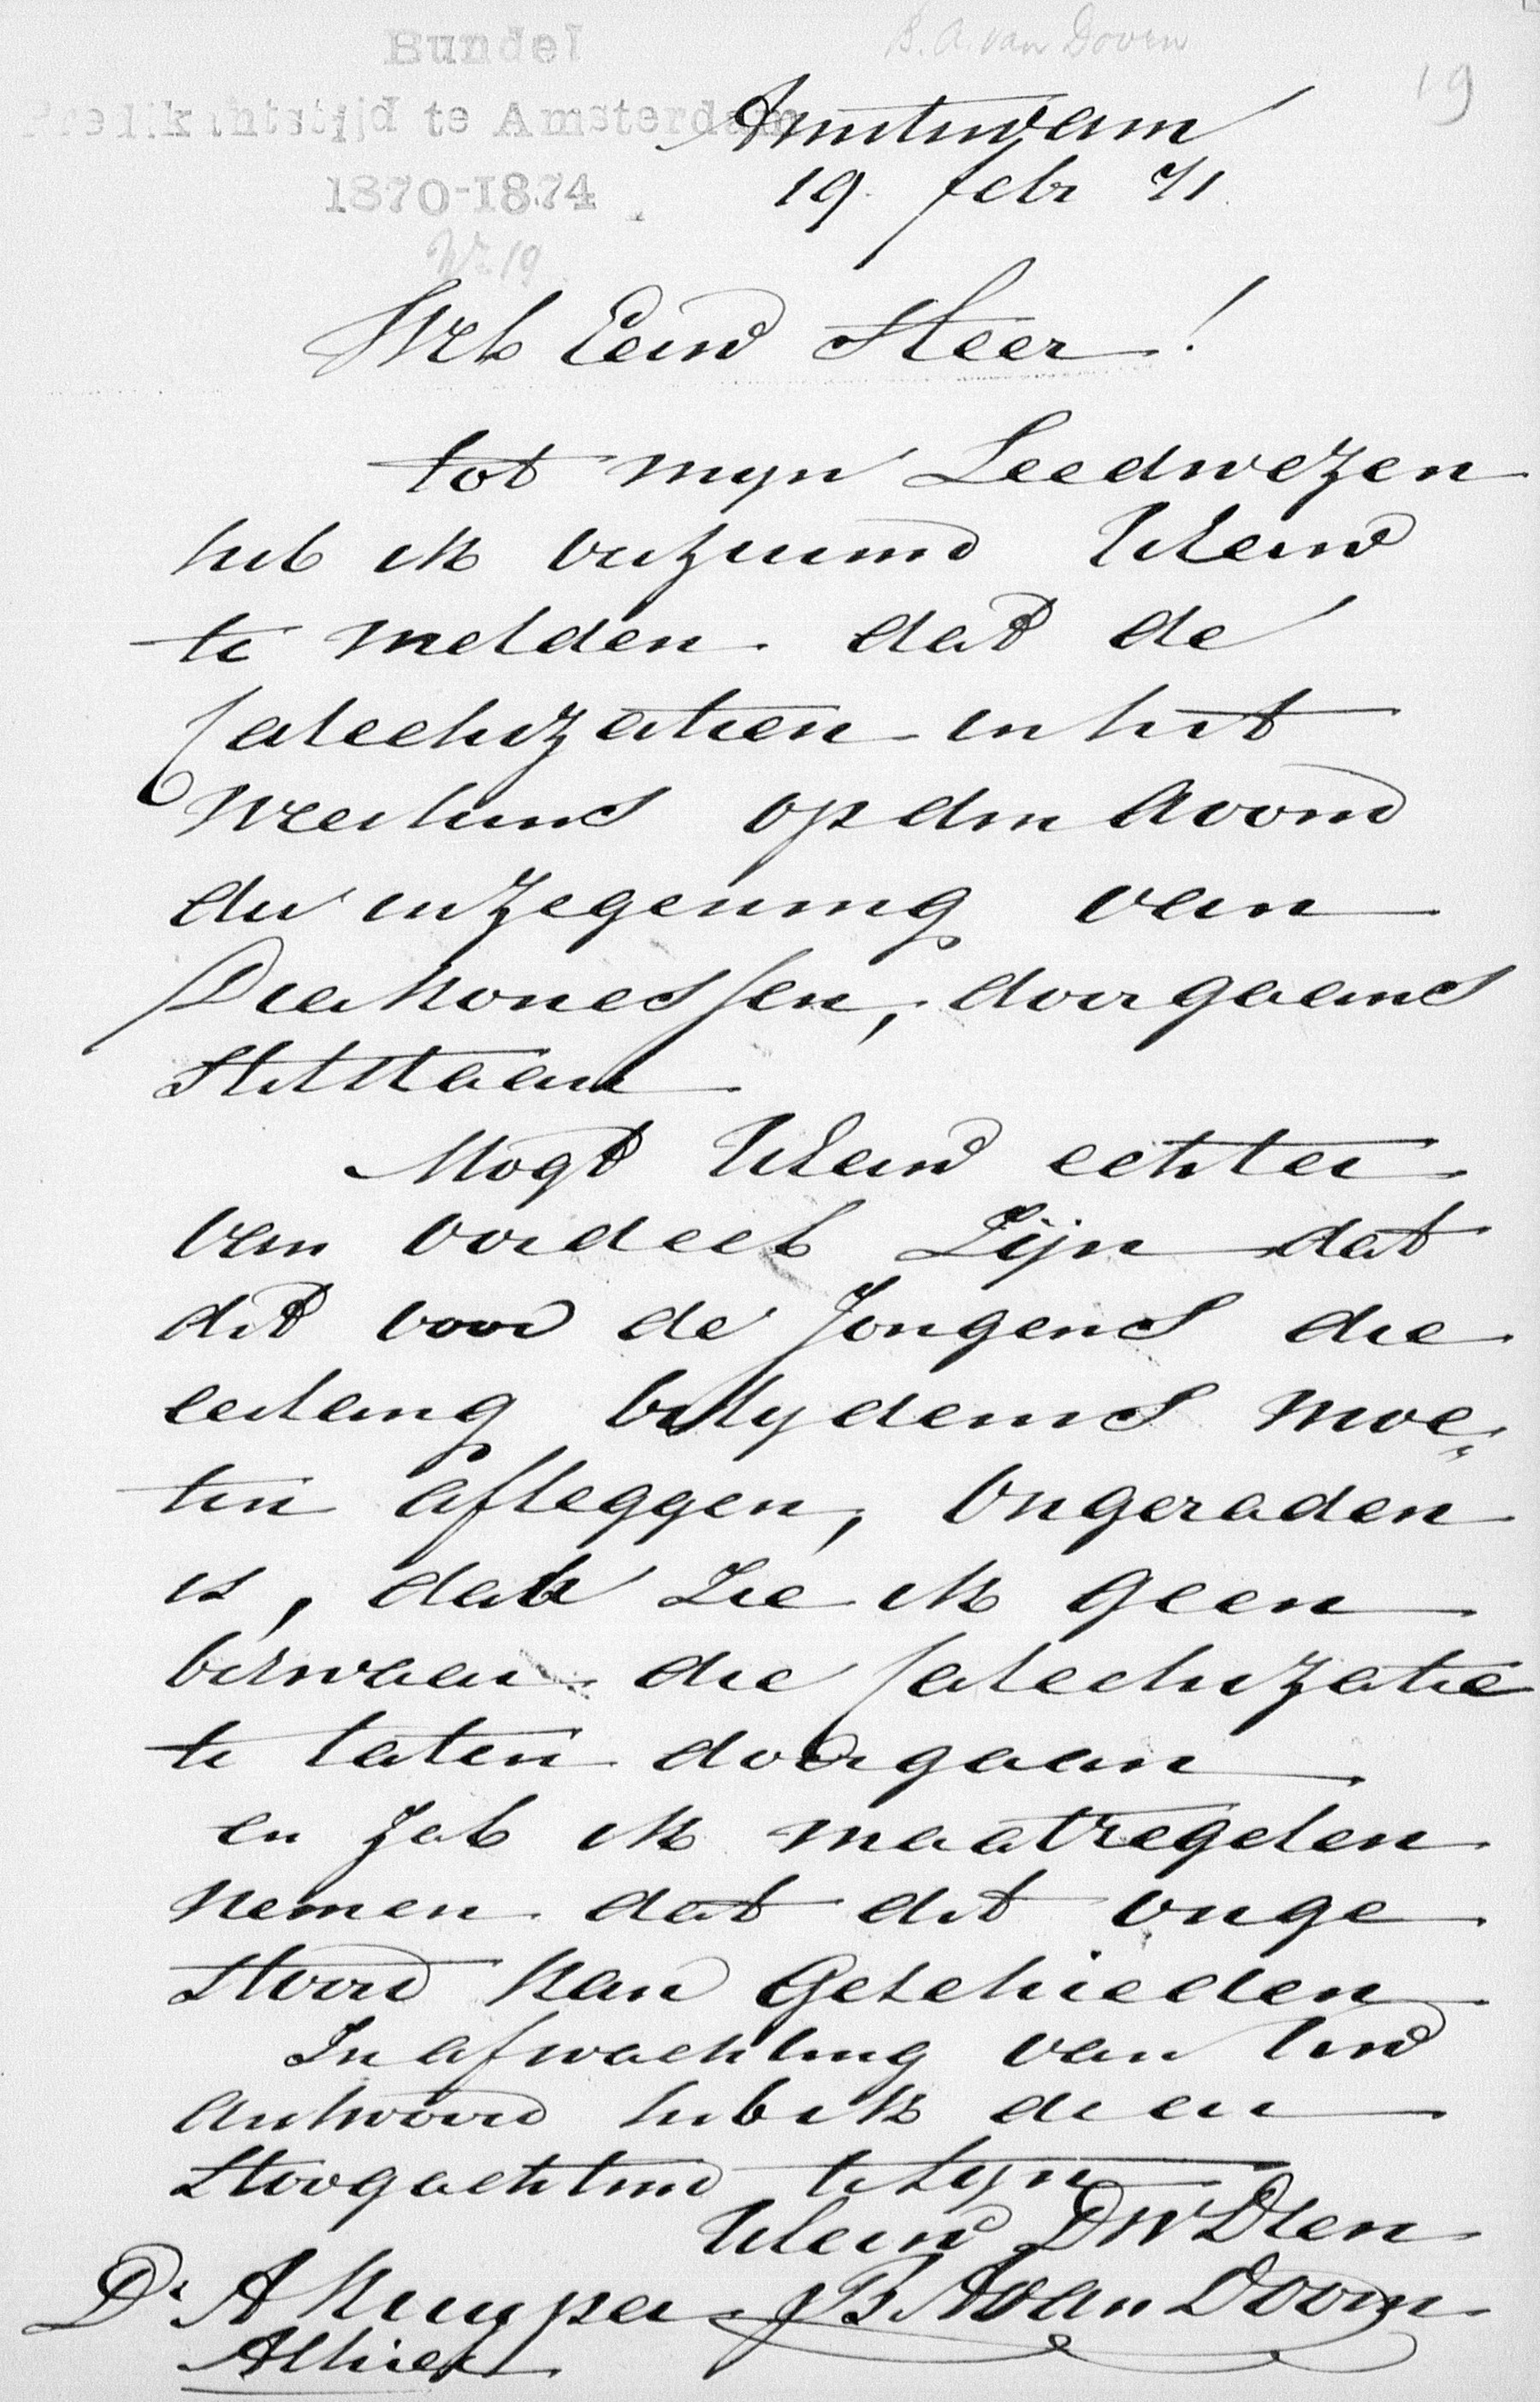 Bundel
B. A. van Doorn
Predikantstijd te Amsterdam
19
1870-1874
No 19
Amsterdam
19 febr 71
Wel Eerw Heer!
tot mijn Leedwezen
heb ik verzuimd UEerw
te melden dat de
Catechizatien in het
Weeshuis op den Avond
der inzegening van
Diakonessen, doorgaans
Stilstaan
Mogt UEerw echter
van oordeel Zijn dat
dit voor de Jongens die
eerlang belydenis moe„
ten afleggen, Ongeraden
is, dan Zie ik geen
bezwaar die Catechizatie
te laten doorgaan
en zal ik maatregelen
nemen dat dit onge
stoord kan Geschieden
In afwachting van Uw
Antwoord heb ik de eer
Hoogachtend te Zyn
UEerw DWDien
Dr. A Kuyper B. A van Doorn
Alhier